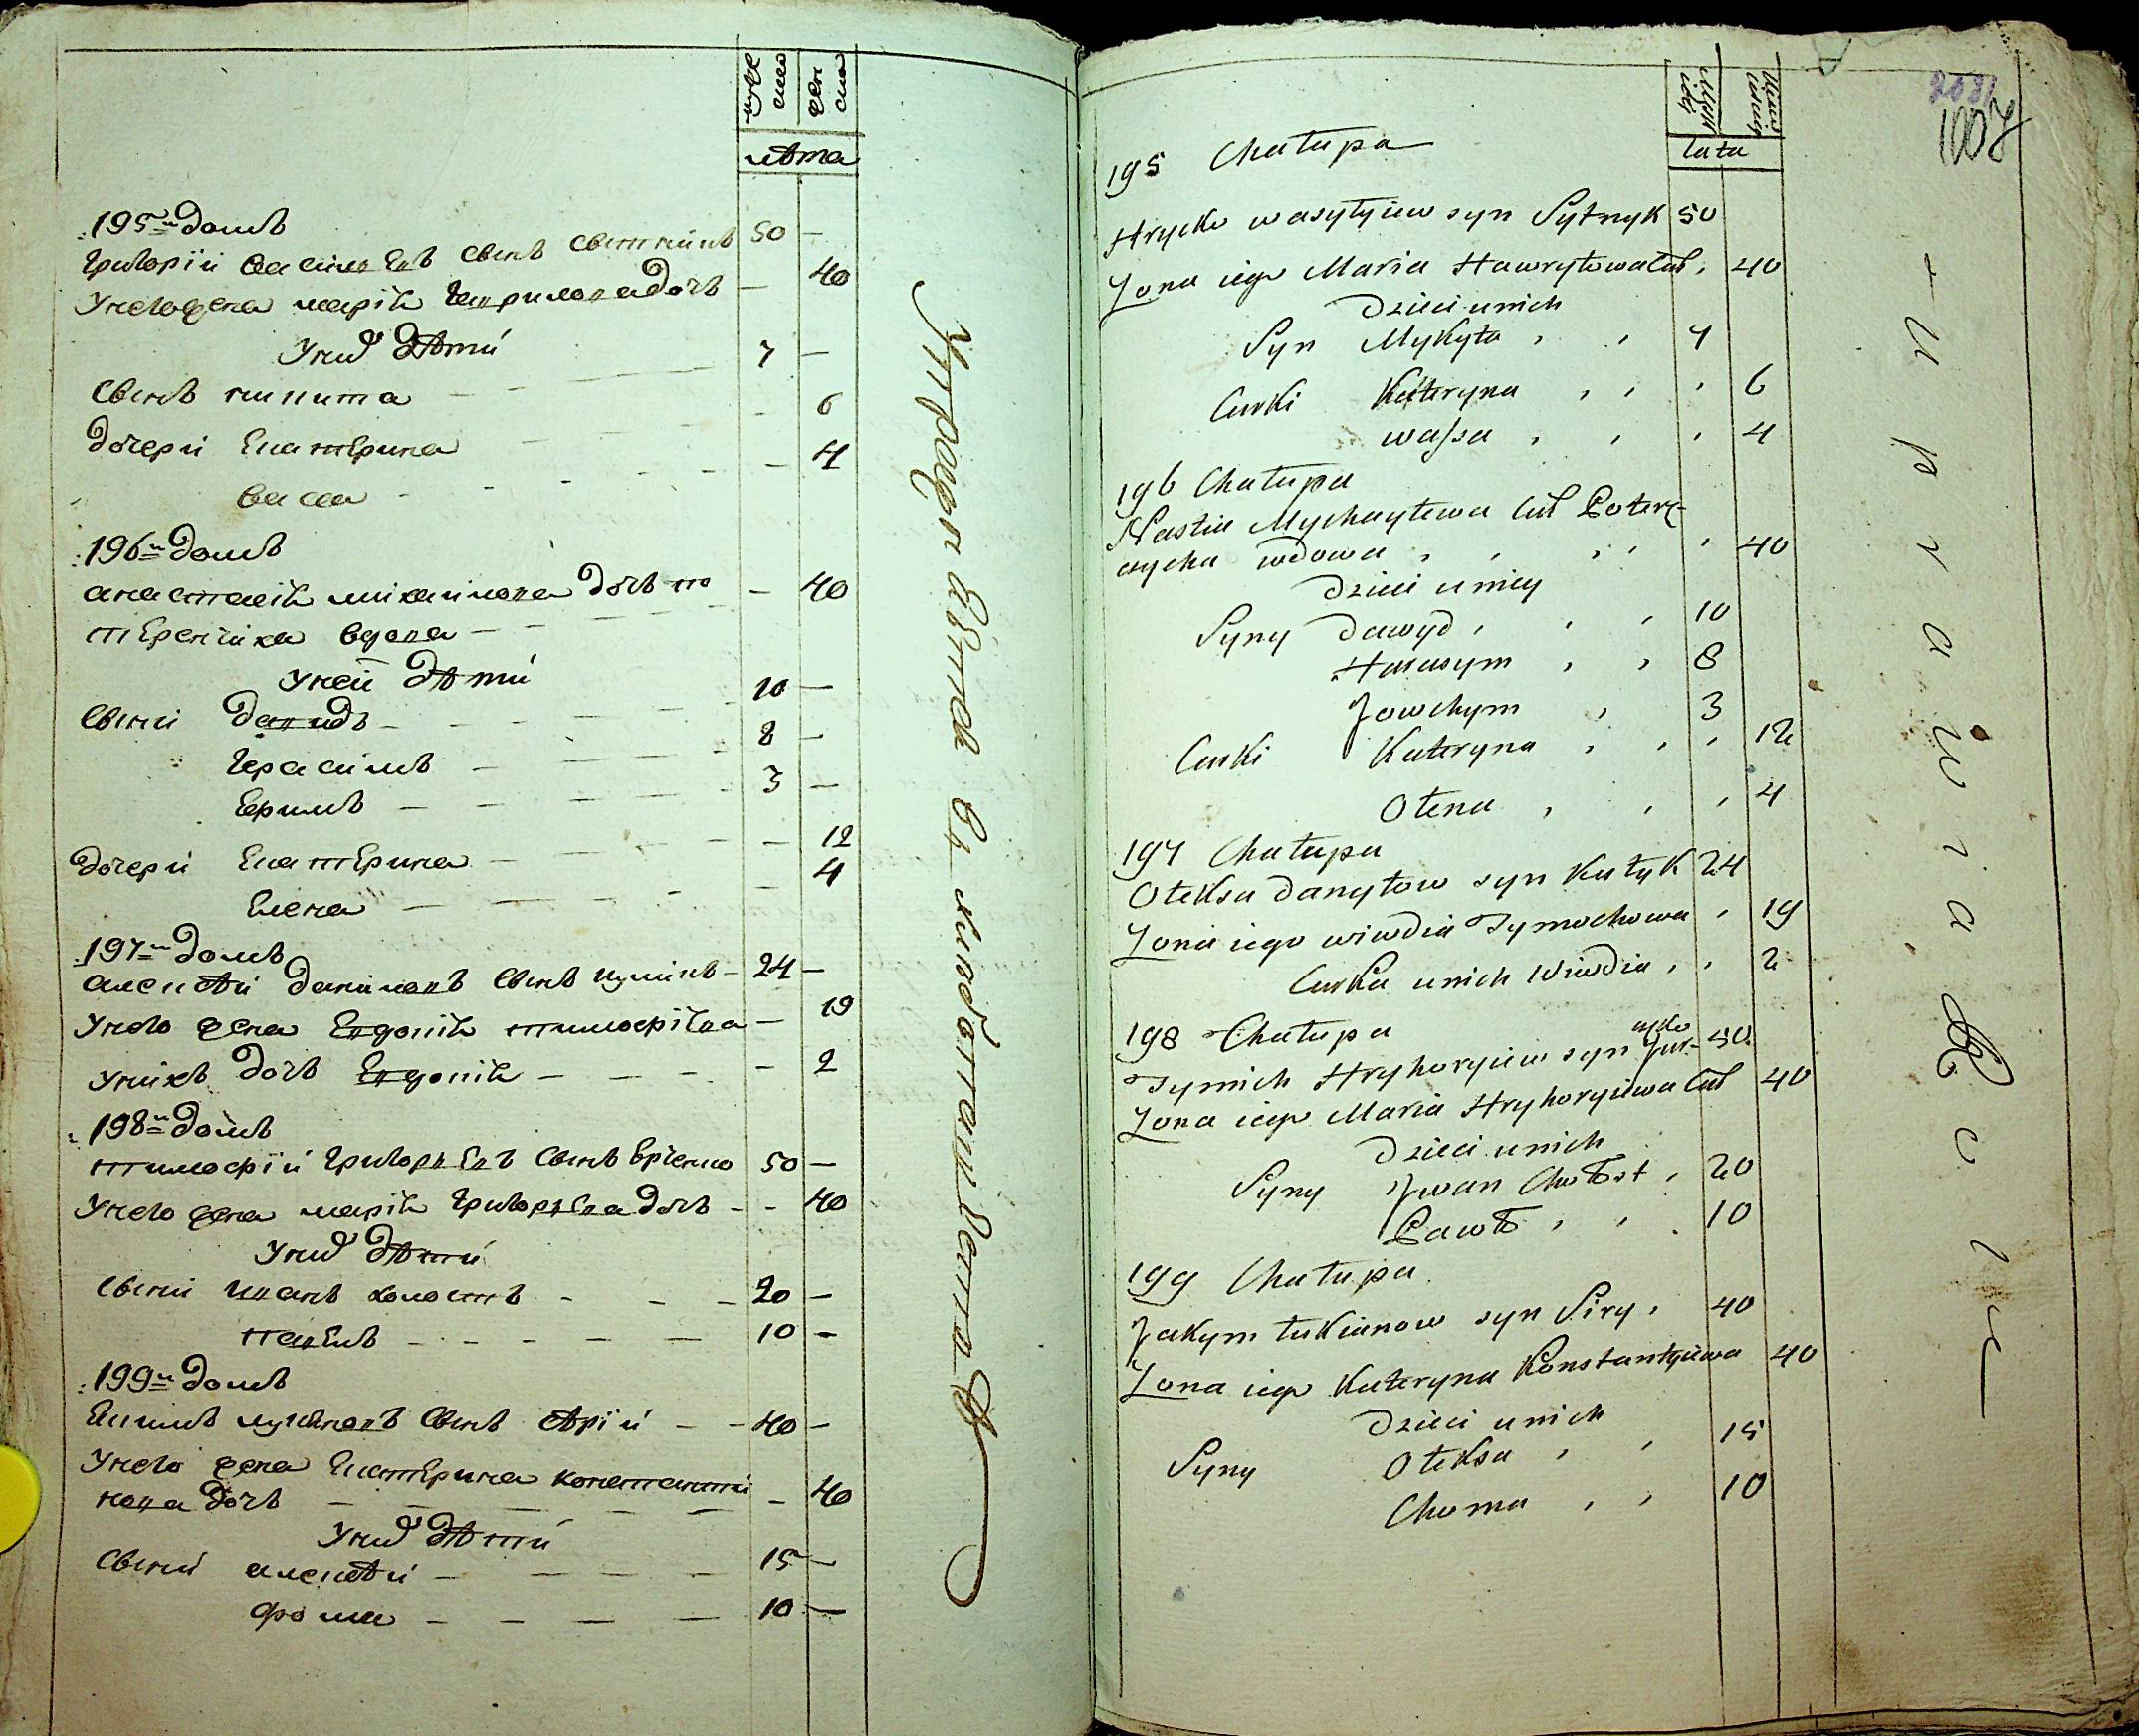 мужеска
женска
лѣта
195й домъ
Григорїй Василевъ сынъ Сытникъ 50 —
У него жена марїя Гаврилова дочь — 40
У них дѣти
Сынъ никита — 7 —
Дочери Екатерина — 6
васса — 4
196й домъ
анастасїя михайлова дочь по
терепчиха вдова — 40
У неи дѣти
Сыни давидъ — 10 —
Герасимъ — 8 —
Ефимъ — 3 —
Дочери Екатерина — 12
Елена — 4
197й домъ
алексѣй данїловъ сынъ куликъ — 24 —
У него жена Евдокїя тимофѣева — 19
У них дочь Евдокїя — 2
198й домъ
тимофїй Григорьевъ сынъ 50 —
У него жена марїя Григорьева дочь — 40
У них дѣти
Сыни Иванъ холостъ — 20 —
павелъ — 10 —
199й домъ
Екимъ лукяновъ сынъ сѣрїй — 40 —
У него жена Екатерина константи
нова дочь — 40
У них дѣти
Сыни алексѣй — 15 —
фома — 10 —
2031
1007
lata
195 Chałupa
Hryćko wasylyiew syn Sytnyk 50
Żona iego Maria Hawryłowa cur. 40
Dzieci u nich
Syn Mykyta 7
Curki Kateryna 6
wassa 4
196 Chałupa
Nastia Mychayłowa cur Poterep-
czycha wdowa 40
Dzieci u niey
Syny Dawyd 10
Harasym 8
Jowchym 3
Curki Kateryna 12
Ołena 4
197 Chałupa
Ołeksa Danyłow syn Kułyk 24
Żona iego wiwdia Tymochowa 19
Curka u nich Wiwdia 2
198 Chałupa
Tymich Hryhoryiew syn Jur- 50
Żona iego Maria Hryhoryiewa cur 40
Dzieci u nich
Syny Jwan Chołost 20
Pawło 10
199 Chałupa
Jakym Łukianow syn Siry 40
Żona iego Kateryna Konstantyiewa 40
Dzieci u nich
Syny Ołeksa 15
Choma 10